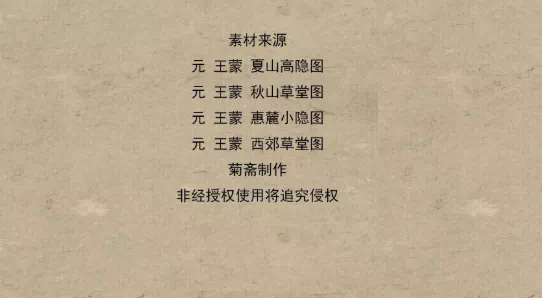 素材来源
元 王蒙 夏山高隐图
元 王蒙 秋山草堂图
元 王蒙 惠麓小隐图
元 王蒙 西郊草堂图
菊斋制作
非经授权使用将追究侵权